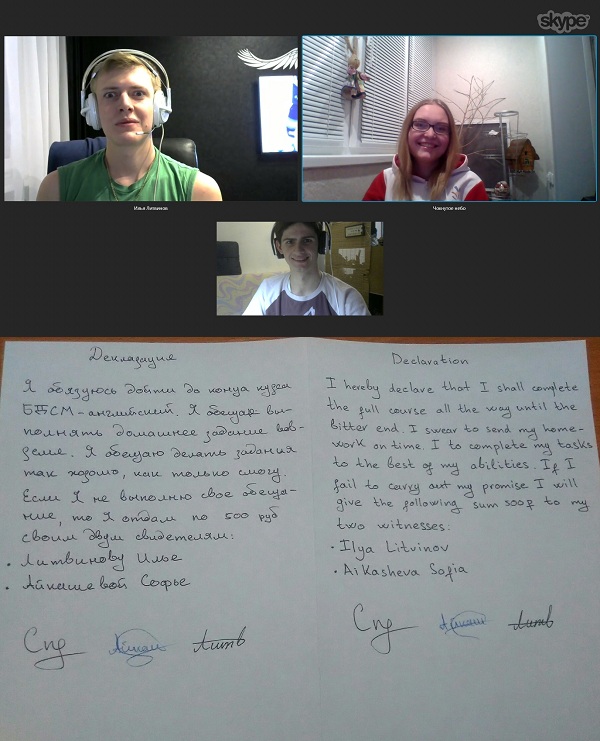 skype
Илья Литвинов
Чокнутое небо
Декларация
Я обязуюсь дойти до конца курса
БДСМ-английский. Я обещаю вы-
полнять домашнее задание вов-
реме. Я обещаю делать задания
так хорошо, как только смогу.
Если Я не выполню свое обеща-
ние, то Я отдам по 500 руб
своим двум свидетелям:
• Литвинову Илье
• Айкашевой Софье
Declaration
I hereby declare that I shall complete
the full course all the way until the
bitter end. I swear to send my home-
work on time. I to complete my tasks
to the best of my abilities. If I
fail to carry out my promise I will
give the following sum 500₽ to my
two witnesses:
• Ilya Litvinov
• Aikasheva Sofia